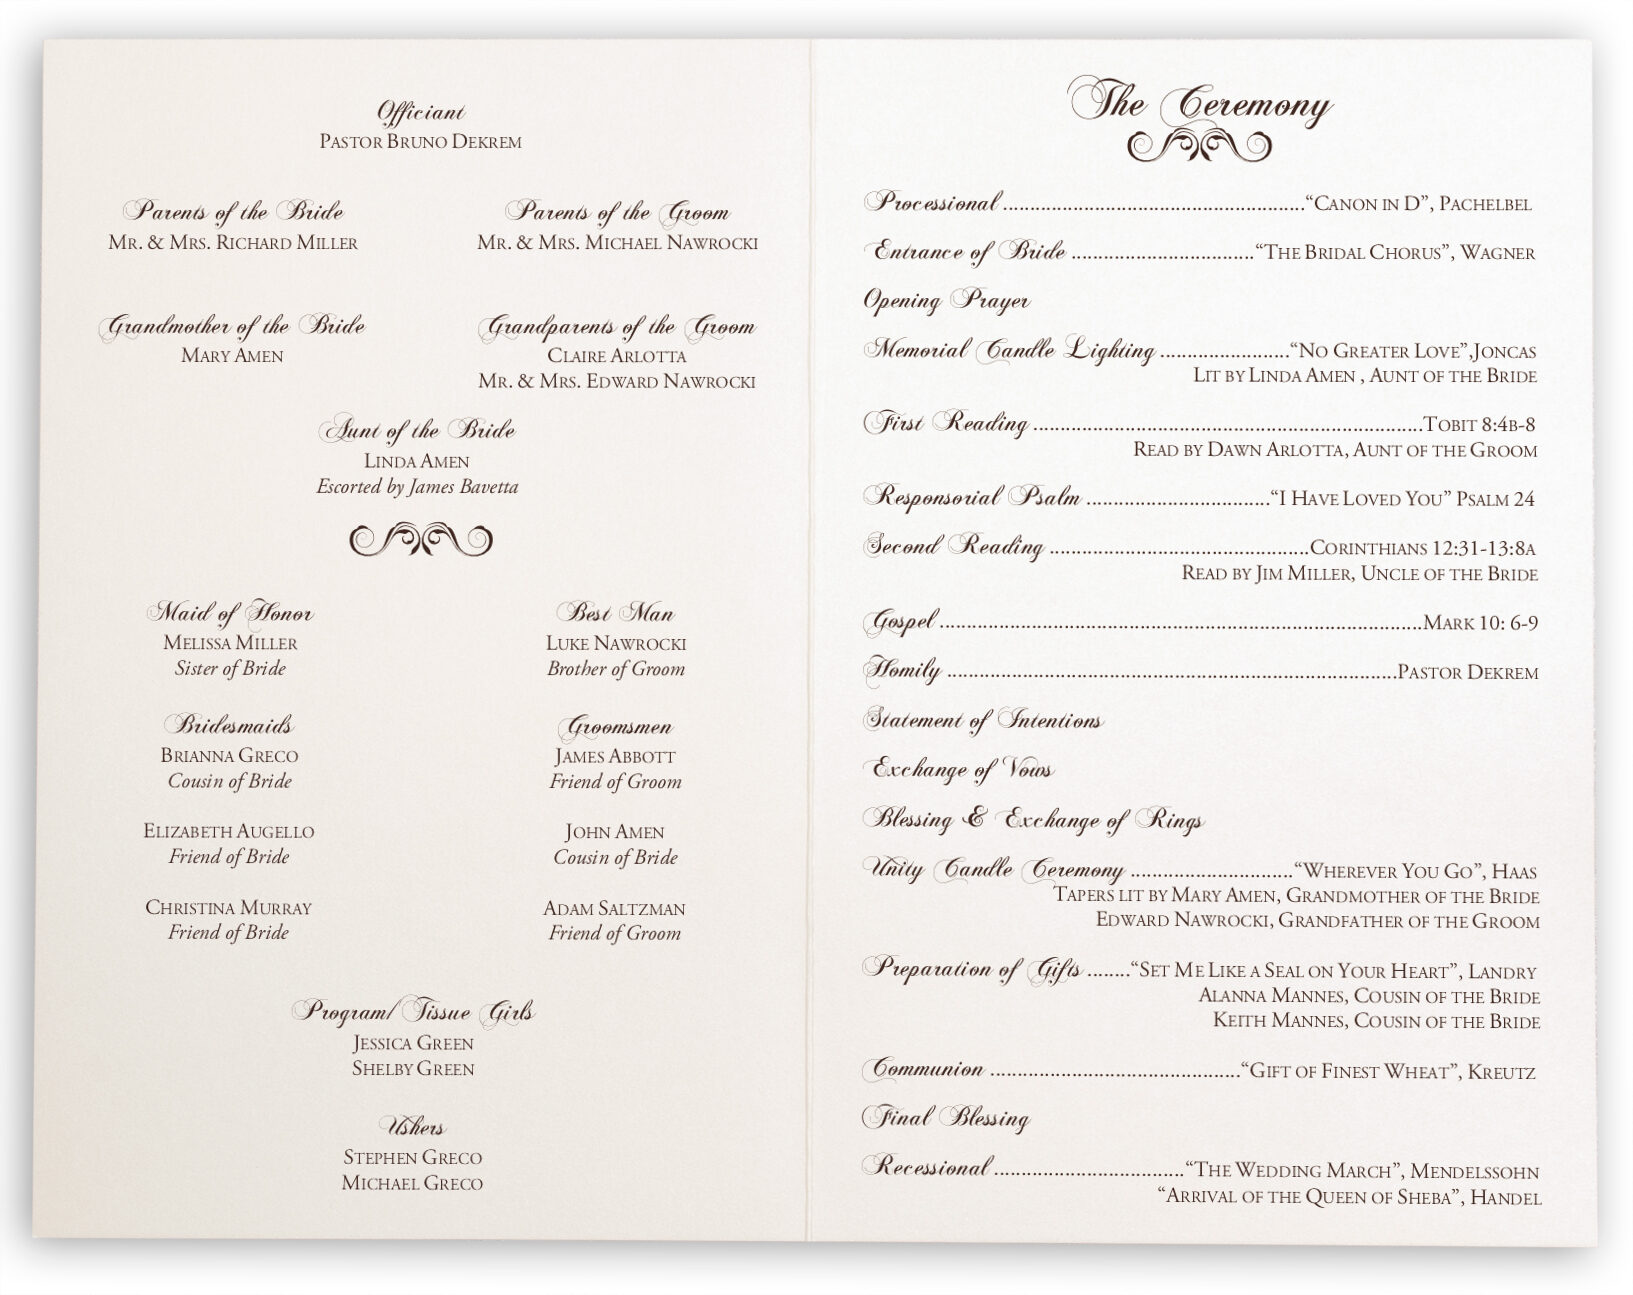 Officiant
Pastor Bruno Dekrem
Parents of the Bride
Mr. & Mrs. Richard Miller
Parents of the Groom
Mr. & Mrs. Michael Nawrocki
Grandmother of the Bride
Mary Amen
Grandparents of the Groom
Claire Arlotta
Mr. & Mrs. Edward Nawrocki
Aunt of the Bride
Linda Amen
Escorted by James Bavetta
Maid of Honor
Melissa Miller
Sister of Bride
Best Man
Luke Nawrocki
Brother of Groom
Bridesmaids
Brianna Greco
Cousin of Bride
Elizabeth Augello
Friend of Bride
Christina Murray
Friend of Bride
Groomsmen
James Abbott
Friend of Groom
John Amen
Cousin of Bride
Adam Saltzman
Friend of Groom
Program/ Tissue Girls
Jessica Green
Shelby Green
Ushers
Stephen Greco
Michael Greco
The Ceremony
Processional ..................................................... “Canon in D”, Pachelbel
Entrance of Bride ................................. “The Bridal Chorus”, Wagner
Opening Prayer
Memorial Candle Lighting ........................ “No Greater Love”,Joncas
Lit by Linda Amen , Aunt of the Bride
First Reading ..................................................................... Tobit 8:4b-8
Read by Dawn Arlotta, Aunt of the Groom
Responsorial Psalm ................................. “I Have Loved You” Psalm 24
Second Reading .............................................. Corinthians 12:31-13:8a
Read by Jim Miller, Uncle of the Bride
Gospel ..................................................................................... Mark 10: 6-9
Homily ................................................................................ Pastor Dekrem
Statement of Intentions
Exchange of Vows
Blessing & Exchange of Rings
Unity Candle Ceremony ............................. “Wherever You Go”, Haas
Tapers lit by Mary Amen, Grandmother of the Bride
Edward Nawrocki, Grandfather of the Groom
Preparation of Gifts ........ “Set Me Like a Seal on Your Heart”, Landry
Alanna Mannes, Cousin of the Bride
Keith Mannes, Cousin of the Bride
Communion ............................................. “Gift of Finest Wheat”, Kreutz
Final Blessing
Recessional .................................. “The Wedding March”, Mendelssohn
“Arrival of the Queen of Sheba”, Handel